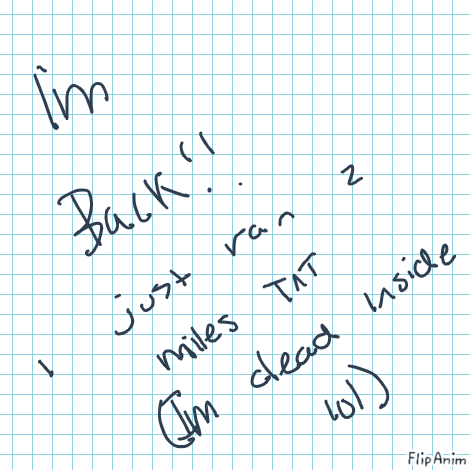 I'm
Back!!
I just ran 2
miles TnT
(Im dead inside
lol)
FlipAnim